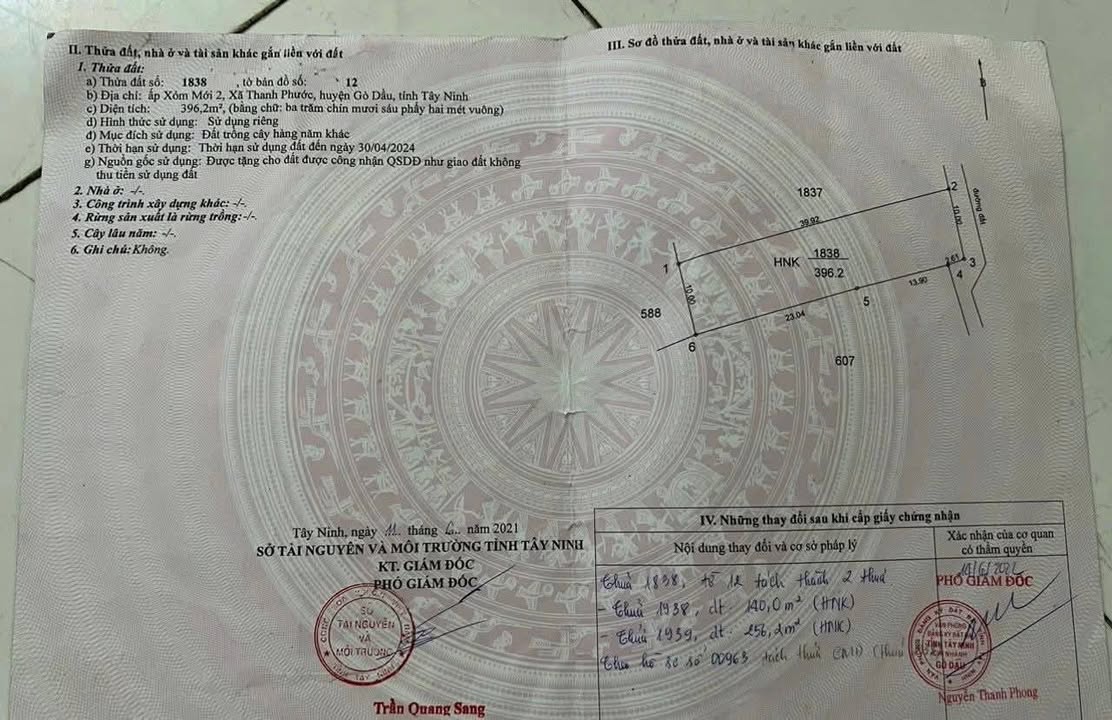 II. Thửa đất, nhà ở và tài sản khác gắn liền với đất
1. Thửa đất:
a) Thửa đất số: 1838 , tờ bản đồ số: 12
b) Địa chỉ: ấp Xóm Mới 2, Xã Thanh Phước, huyện Gò Dầu, tỉnh Tây Ninh
c) Diện tích: 396,2m², (bằng chữ: ba trăm chín mươi sáu phẩy hai mét vuông)
d) Hình thức sử dụng: Sử dụng riêng
đ) Mục đích sử dụng: Đất trồng cây hàng năm khác
e) Thời hạn sử dụng: Thời hạn sử dụng đất đến ngày 30/04/2024
g) Nguồn gốc sử dụng: Được tặng cho đất được công nhận QSDĐ như giao đất không
thu tiền sử dụng đất
2. Nhà ở: -/-.
3. Công trình xây dựng khác: -/-.
4. Rừng sản xuất là rừng trồng: -/-.
5. Cây lâu năm: -/-.
6. Ghi chú: Không.
Tây Ninh, ngày 11 tháng 6 năm 2021
SỞ TÀI NGUYÊN VÀ MÔI TRƯỜNG TỈNH TÂY NINH
KT. GIÁM ĐỐC
PHÓ GIÁM ĐỐC
SỞ
TÀI NGUYÊN
VÀ
MÔI TRƯỜNG
TỈNH TÂY NINH
Trần Quang Sang
III. Sơ đồ thửa đất, nhà ở và tài sản khác gắn liền với đất
B
1837
2
đường đất
39.92
10.00
1
HNK
1838
396.2
2.61
3
4
13.90
10.00
5
588
23.04
6
607
IV. Những thay đổi sau khi cấp giấy chứng nhận
Nội dung thay đổi và cơ sở pháp lý
Xác nhận của cơ quan
có thẩm quyền
Thửa 1838, tờ 12 tách thành 2 thửa
- Thửa 1938, dt. 140,0m² (HNK)
- Thửa 1939, dt. 256,2m² (HNK)
Theo hồ sơ số 00963 tách thửa
PHÓ GIÁM ĐỐC
VĂN PHÒNG
ĐĂNG KÝ ĐẤT ĐAI
TỈNH TÂY NINH
CHI NHÁNH
GÒ DẦU
Nguyễn Thanh Phong